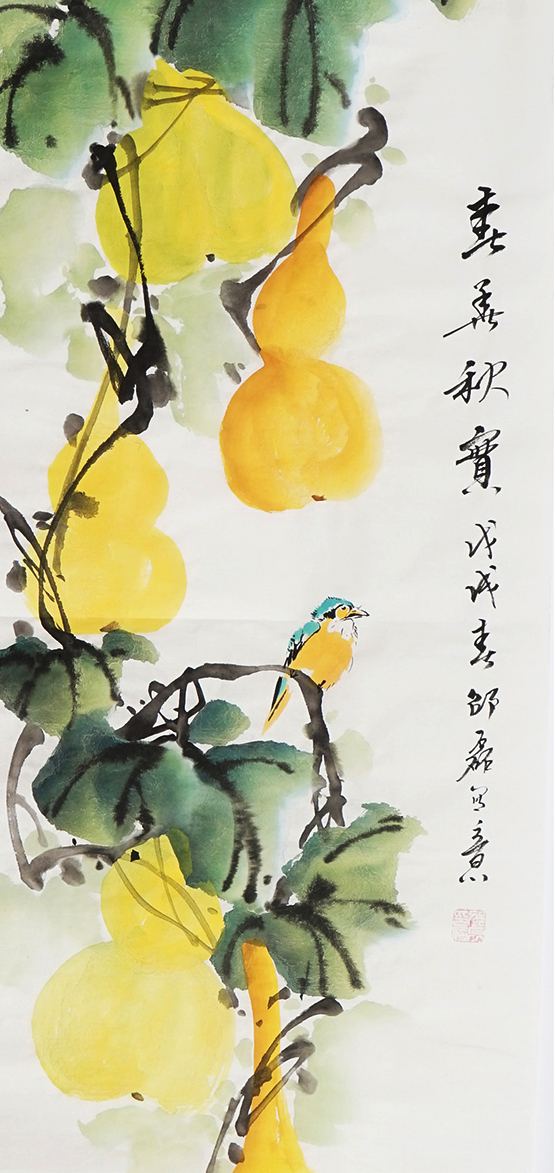 春華秋實戊戌春邵磊写意